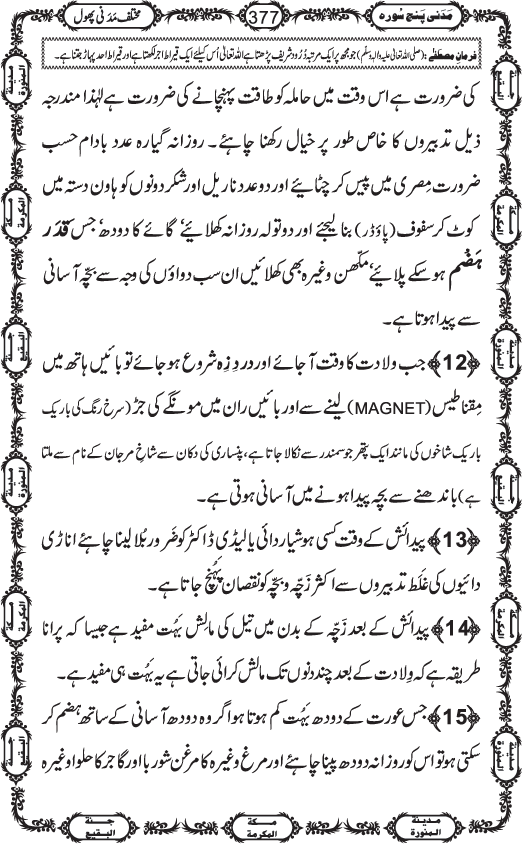 مَدَنی پنج سُورہ
377
مختلف مَدَنی پھول
فرمانِ مصطَفٰے : (صلی اللہ تعالیٰ علیہ واٰلہٖ وسلّم) جو مجھ پر ایک مرتبہ دُرُود شریف پڑھتا ہے اللہ تعالیٰ اُس کیلئے ایک قیراط اجر لکھتا ہے اور قیراط احد پہاڑ جتنا ہے۔
کی ضرورت ہے اس وقت میں حاملہ کو طاقت پہنچانے کی ضرورت ہے لہٰذا مندرجہ
ذیل تدبیروں کا خاص طور پر خیال رکھنا چاہئے۔ روزانہ گیارہ عدد بادام حسب
ضرورت مِصری میں پیس کر چٹایئے اور دو عدد ناریل اور شکر دونوں کو ہاون دستہ میں
کوٹ کر سفوف (پاؤڈر) بنا لیجئے اور دو تولہ روزانہ کھلایئے، گائے کا دودھ، جس قَدَر
ہَضْم ہو سکے پلایئے، مکّھن وغیرہ بھی کھلائیں ان سب دواؤں کی وجہ سے بچّہ آسانی
سے پیدا ہوتا ہے۔
﴿12﴾ جب ولادت کا وقت آجائے اور دردِ زِہ شروع ہو جائے تو بائیں ہاتھ میں
مِقناطیس (MAGNET) لینے سے اور بائیں ران میں مونگے کی جڑ (سرخ رنگ کی باریک
باریک شاخوں کی مانند ایک پتھر جو سمندر سے نکالا جاتا ہے، پنساری کی دکان سے شاخِ مرجان کے نام سے ملتا
ہے) باندھنے سے بچہ پیدا ہونے میں آسانی ہوتی ہے۔
﴿13﴾ پیدائش کے وقت کسی ہوشیار دائی یا لیڈی ڈاکٹر کو ضَرور بُلا لینا چاہئے اناڑی
دائیوں کی غَلَط تدبیروں سے اکثر زَچّہ و بچّہ کو نقصان پہُنْچ جاتا ہے۔
﴿14﴾ پیدائش کے بعد زَچّہ کے بدن میں تیل کی مالِش بہُت مفید ہے جیسا کہ پرانا
طریقہ ہے کہ وِلادت کے بعد چند دنوں تک مالش کرائی جاتی ہے یہ بہُت ہی مفید ہے۔
﴿15﴾ جس عورت کے دودھ بہُت کم ہوتا ہو اگر وہ دودھ آسانی کے ساتھ ہضم کر
سکتی ہو تو اس کو روزانہ دودھ پینا چاہئے اور مرغ وغیرہ کا مرغن شوربا اور گاجر کا حلوا وغیرہ
مدینۃ المنورۃ
جنۃ البقیع
مکۃ المکرمۃ
مکۃ المکرمۃ
جنۃ البقیع
مدینۃ المنورۃ
مدینۃ المنورۃ
جنۃ البقیع
مکۃ المکرمۃ
مکۃ المکرمۃ
جنۃ البقیع
مدینۃ المنورۃ
جنۃ البقیع
مکۃ المکرمۃ
مدینۃ المنورۃ